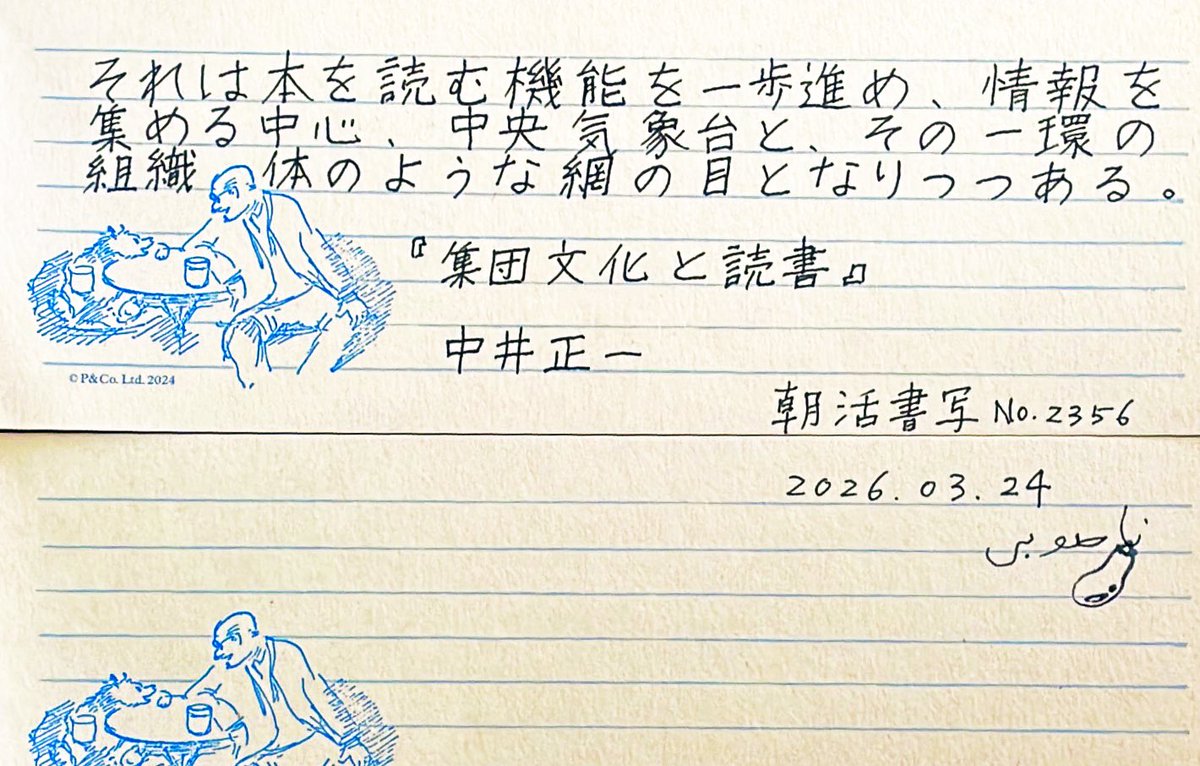 それは本を読む機能を一歩進め、情報を
集める中心、中央気象台と、その一環の
組織 体のような網の目となりつつある。
『集団文化と読書』
中井正一
© P&Co. Ltd. 2024
朝活書写 No.2356
2026.03.24